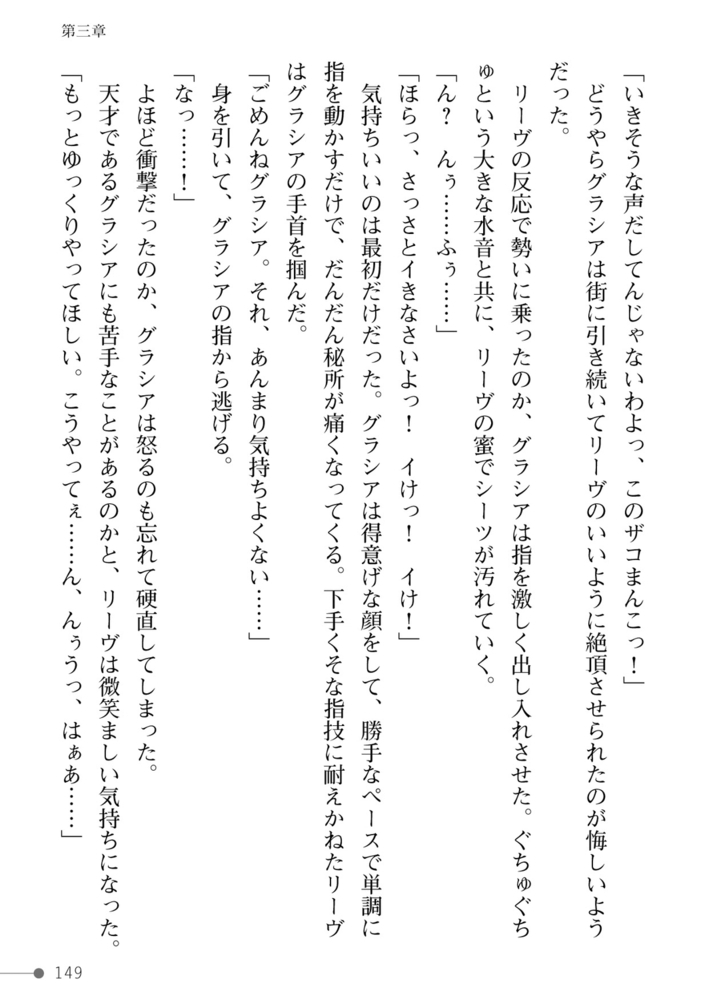 第三章
「いきそうな声だしてんじゃないわよっ、このザコまんこっ！」
　どうやらグラシアは街に引き続いてリーヴのいいように絶頂させられたのが悔しいよう
だった。
　リーヴの反応で勢いに乗ったのか、グラシアは指を激しく出し入れさせた。ぐちゅぐち
ゅという大きな水音と共に、リーヴの蜜でシーツが汚れていく。
「ん？　んぅ……ふぅ……」
「ほらっ、さっさとイきなさいよっ！　イけっ！　イけ！」
　気持ちいいのは最初だけだった。グラシアは得意げな顔をして、勝手なペースで単調に
指を動かすだけで、だんだん秘所が痛くなってくる。下手くそな指技に耐えかねたリーヴ
はグラシアの手首を掴んだ。
「ごめんねグラシア。それ、あんまり気持ちよくない……」
　身を引いて、グラシアの指から逃げる。
「なっ……！」
　よほど衝撃だったのか、グラシアは怒るのも忘れて硬直してしまった。
　天才であるグラシアにも苦手なことがあるのかと、リーヴは微笑ましい気持ちになった。
「もっとゆっくりやってほしい。こうやってぇ……ん、んぅうっ、はぁあ……」
149